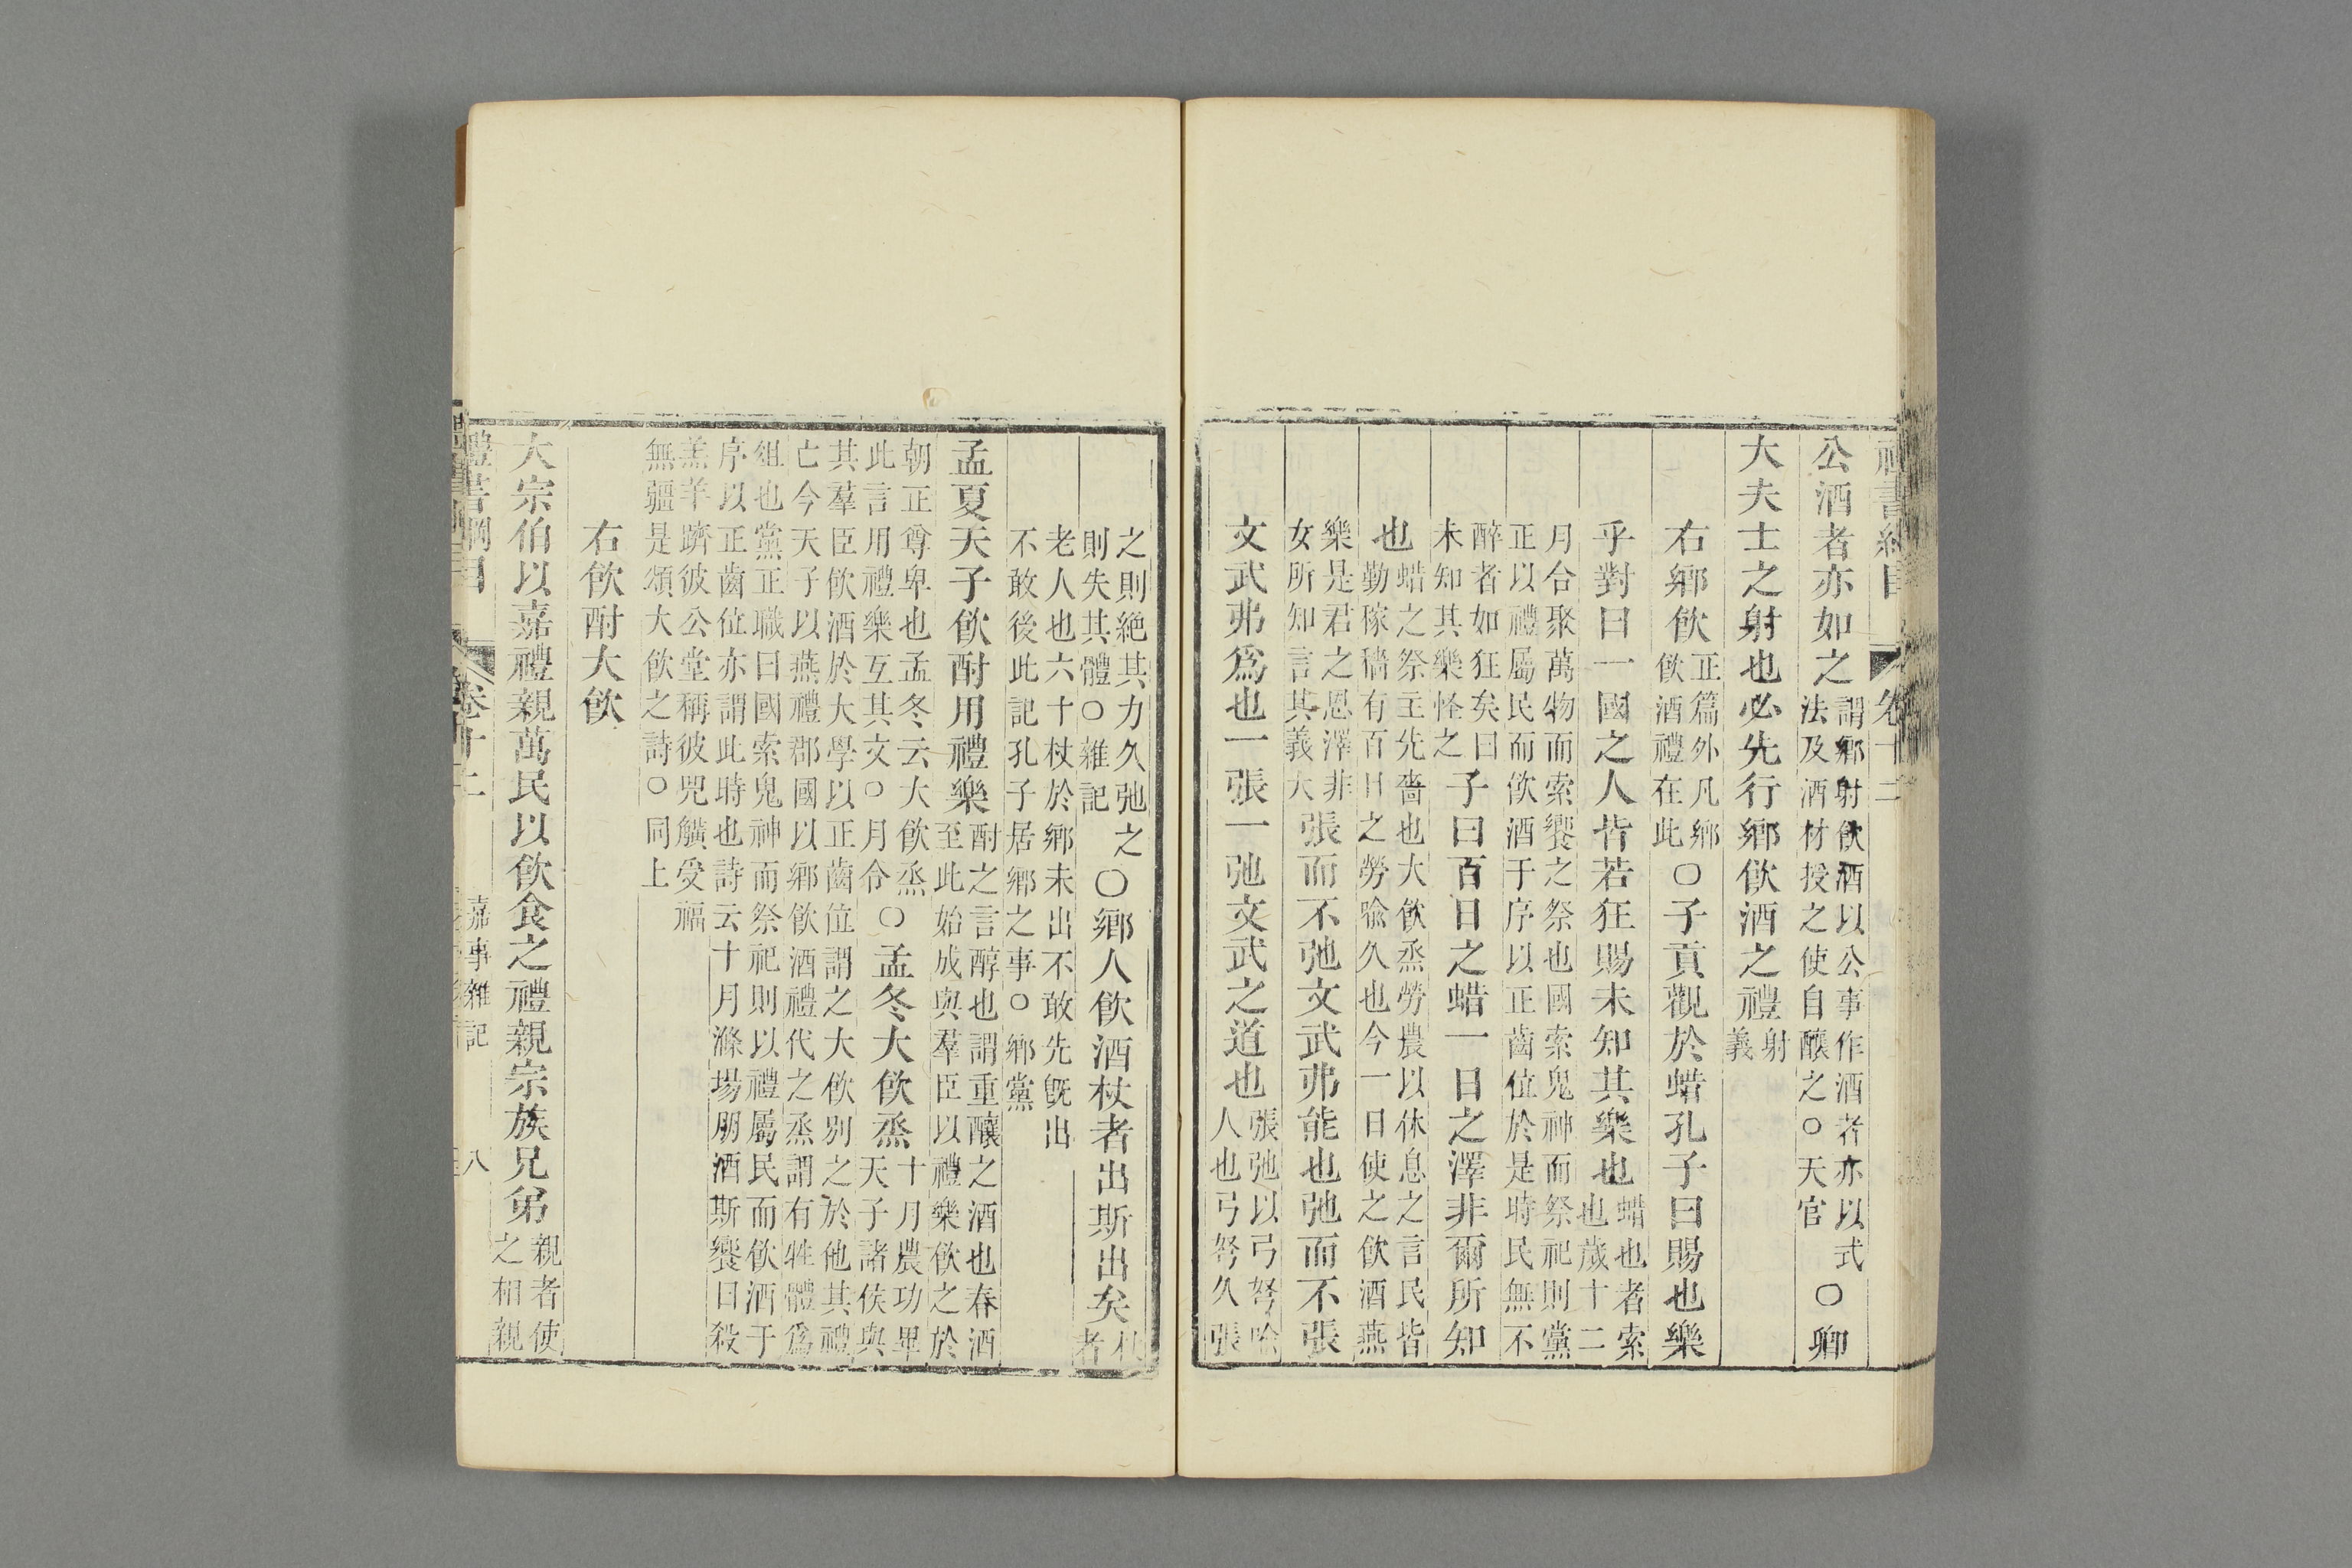 禮書綱目 卷十二
公酒者亦如之謂鄉射飲酒以公事作酒者亦以式
法及酒材授之使自釀之○天官○卿
大夫士之射也必先行鄉飲酒之禮射
義
右鄉飲正篇外凡鄉
飲酒禮在此○子貢觀於蜡孔子曰賜也樂
乎對曰一國之人皆若狂賜未知其樂也蜡也者索
也歲十二
月合聚萬物而索饗之祭也國索鬼神而祭祀則黨
正以禮屬民而飲酒于序以正齒位於是時民無不
醉者如狂矣曰
未知其樂怪之子曰百日之蜡一日之澤非爾所知
也蜡之祭主先嗇也大飲烝勞農以休息之言民皆
勤稼穡有百日之勞喻久也今一日使之飲酒燕
樂是君之恩澤非
女所知言其義大張而不弛文武弗能也弛而不張
文武弗為也一張一弛文武之道也張弛以弓弩喻
人也弓弩久張
之則絕其力久弛之
則失其體○雜記○鄉人飲酒杖者出斯出矣杖
者
老人也六十杖於鄉未出不敢先旣出
不敢後此記孔子居鄉之事○鄉黨
孟夏天子飲酎用禮樂酎之言醇也謂重釀之酒也春酒
至此始成與羣臣以禮樂飲之於
朝正尊卑也孟冬云大飲烝
此言用禮樂互其文○月令○孟冬大飲烝十月農功畢
天子諸侯與
其羣臣飲酒於大學以正齒位謂之大飲別之於他其禮
亡今天子以燕禮郡國以鄉飲酒禮代之烝謂有牲體爲
俎也黨正職曰國索鬼神而祭祀則以禮屬民而飲酒于
序以正齒位亦謂此時也詩云十月滌場朋酒斯饗曰殺
羔羊躋彼公堂稱彼兕觥受福
無疆是頌大飲之詩○同上
右飲酎大飲
大宗伯以嘉禮親萬民以飲食之禮親宗族兄弟親者使
之相親
禮書綱目 卷十二 嘉事雜記 八